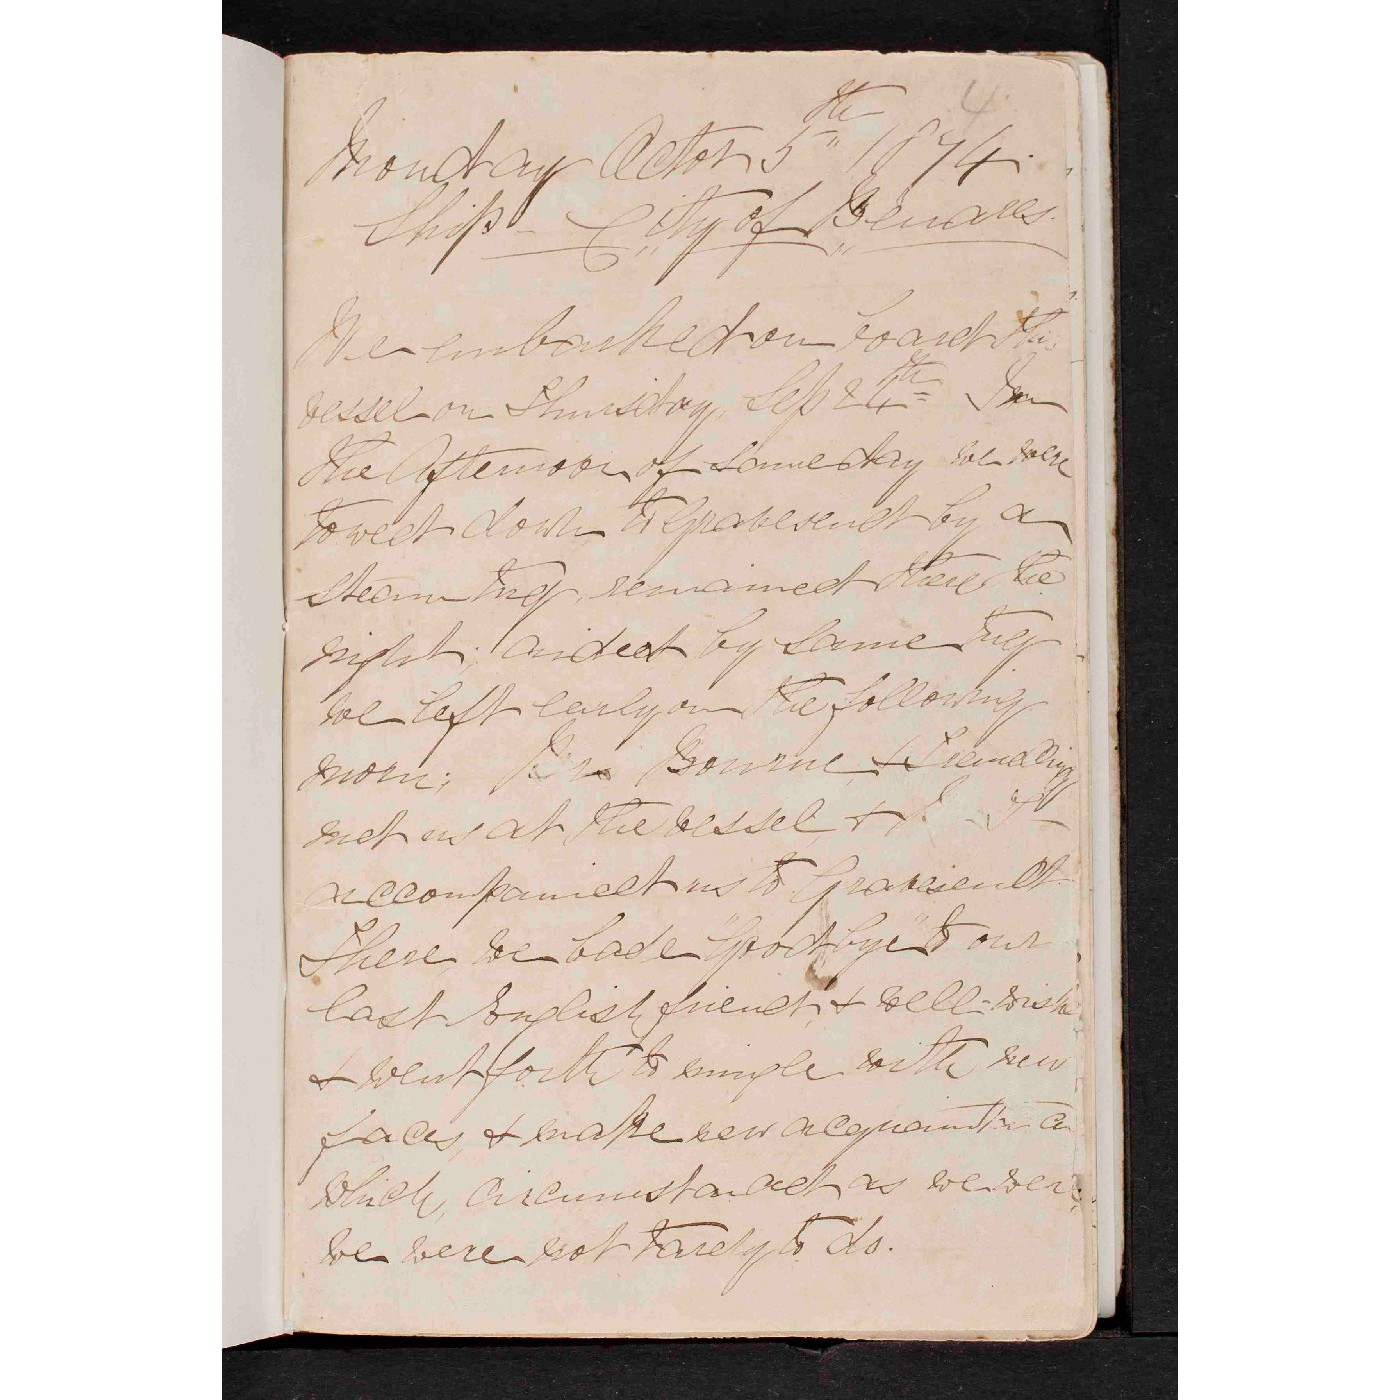 4
Monday Octor 5th 1874.
Ship - "City of Benares"
We embarked on board this
vessel on Thursday, Sep 24th In
the Afternoon of same day we were
towed down to Gravesend by a
steam tug, remained there the
night; aided by same tug
we left early on the following
morn; Bourne, &
met us at the vessel, &
accompanied us to Gravesend
There, we bade "Goodbye" to our
last English friend, & well-wishe
& went forth to mingle with new
faces, & make new acquaintance
which, circumstanced as we were,
we were not tardy to do.